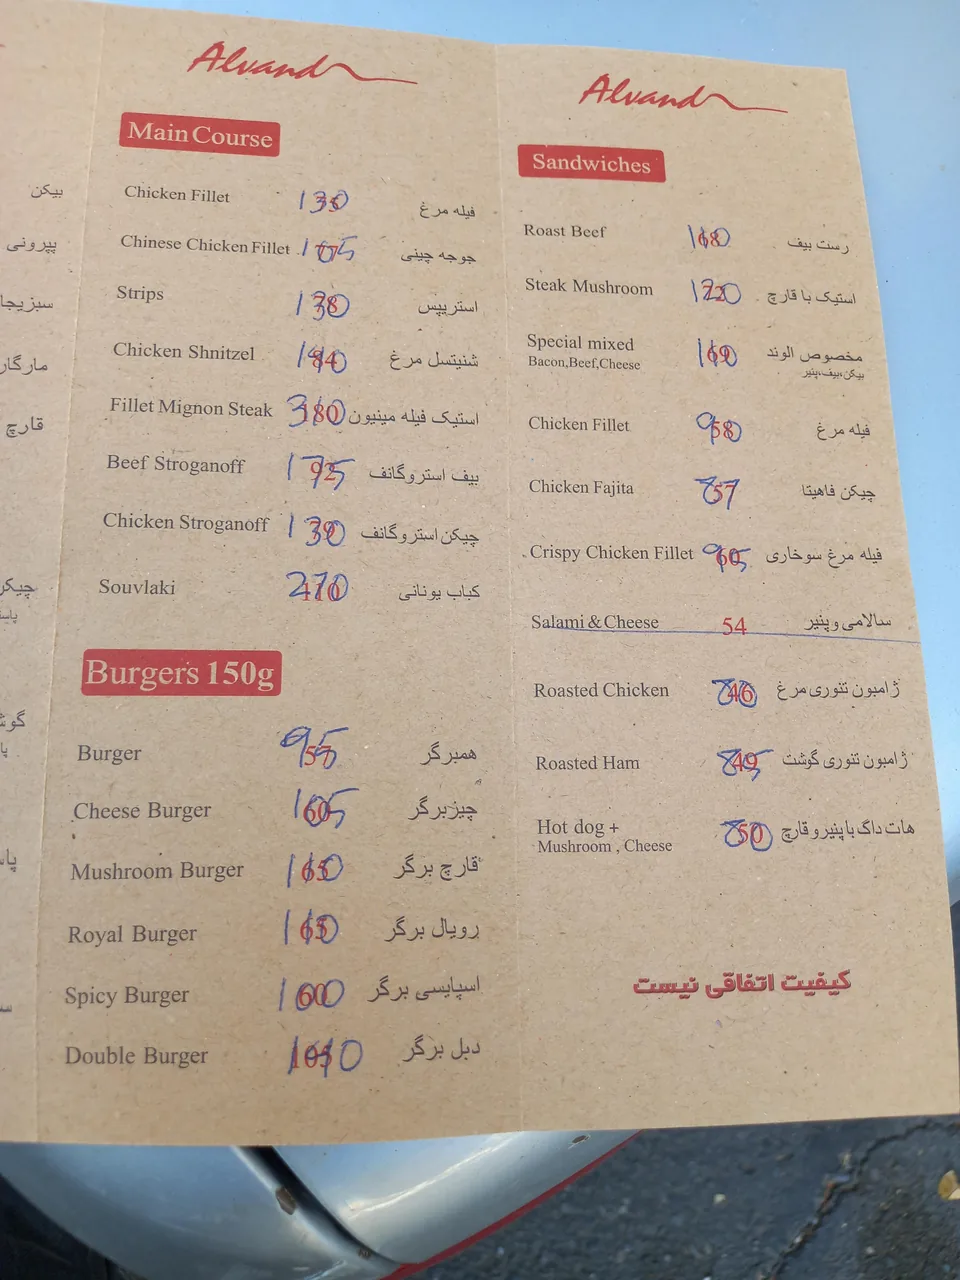 بیکن
پپرونی
قارچ
Alvand
Main Course
Chicken Fillet 130 فیله مرغ
Chinese Chicken Fillet 165 جوجه چینی
Strips 130 استریپس
Chicken Shnitzel 140 شنیتسل مرغ
Fillet Mignon Steak 310 استیک فیله مینیون
Beef Stroganoff 175 بیف استروگانف
Chicken Stroganoff 130 چیکن استروگانف
Souvlaki 270 کباب یونانی
Burgers 150g
Burger 95 همبرگر
Cheese Burger 105 چیزبرگر
Mushroom Burger 110 قارچ برگر
Royal Burger 110 رویال برگر
Spicy Burger 100 اسپایسی برگر
Double Burger 140 دبل برگر
Alvand
Sandwiches
Roast Beef 110 رست بیف
Steak Mushroom 120 استیک با قارچ
Special mixed 110 مخصوص الوند
Bacon,Beef,Cheese بیکن،بیف،پنیر
Chicken Fillet 90 فیله مرغ
Chicken Fajita 87 چیکن فاهیتا
Crispy Chicken Fillet 95 فیله مرغ سوخاری
Salami & Cheese 54 سالامی و پنیر
Roasted Chicken ژامبون تنوری مرغ
Roasted Ham 85 ژامبون تنوری گوشت
Hot dog + 80 هات داگ با پنیر و قارچ
Mushroom , Cheese
کیفیت اتفاقی نیست